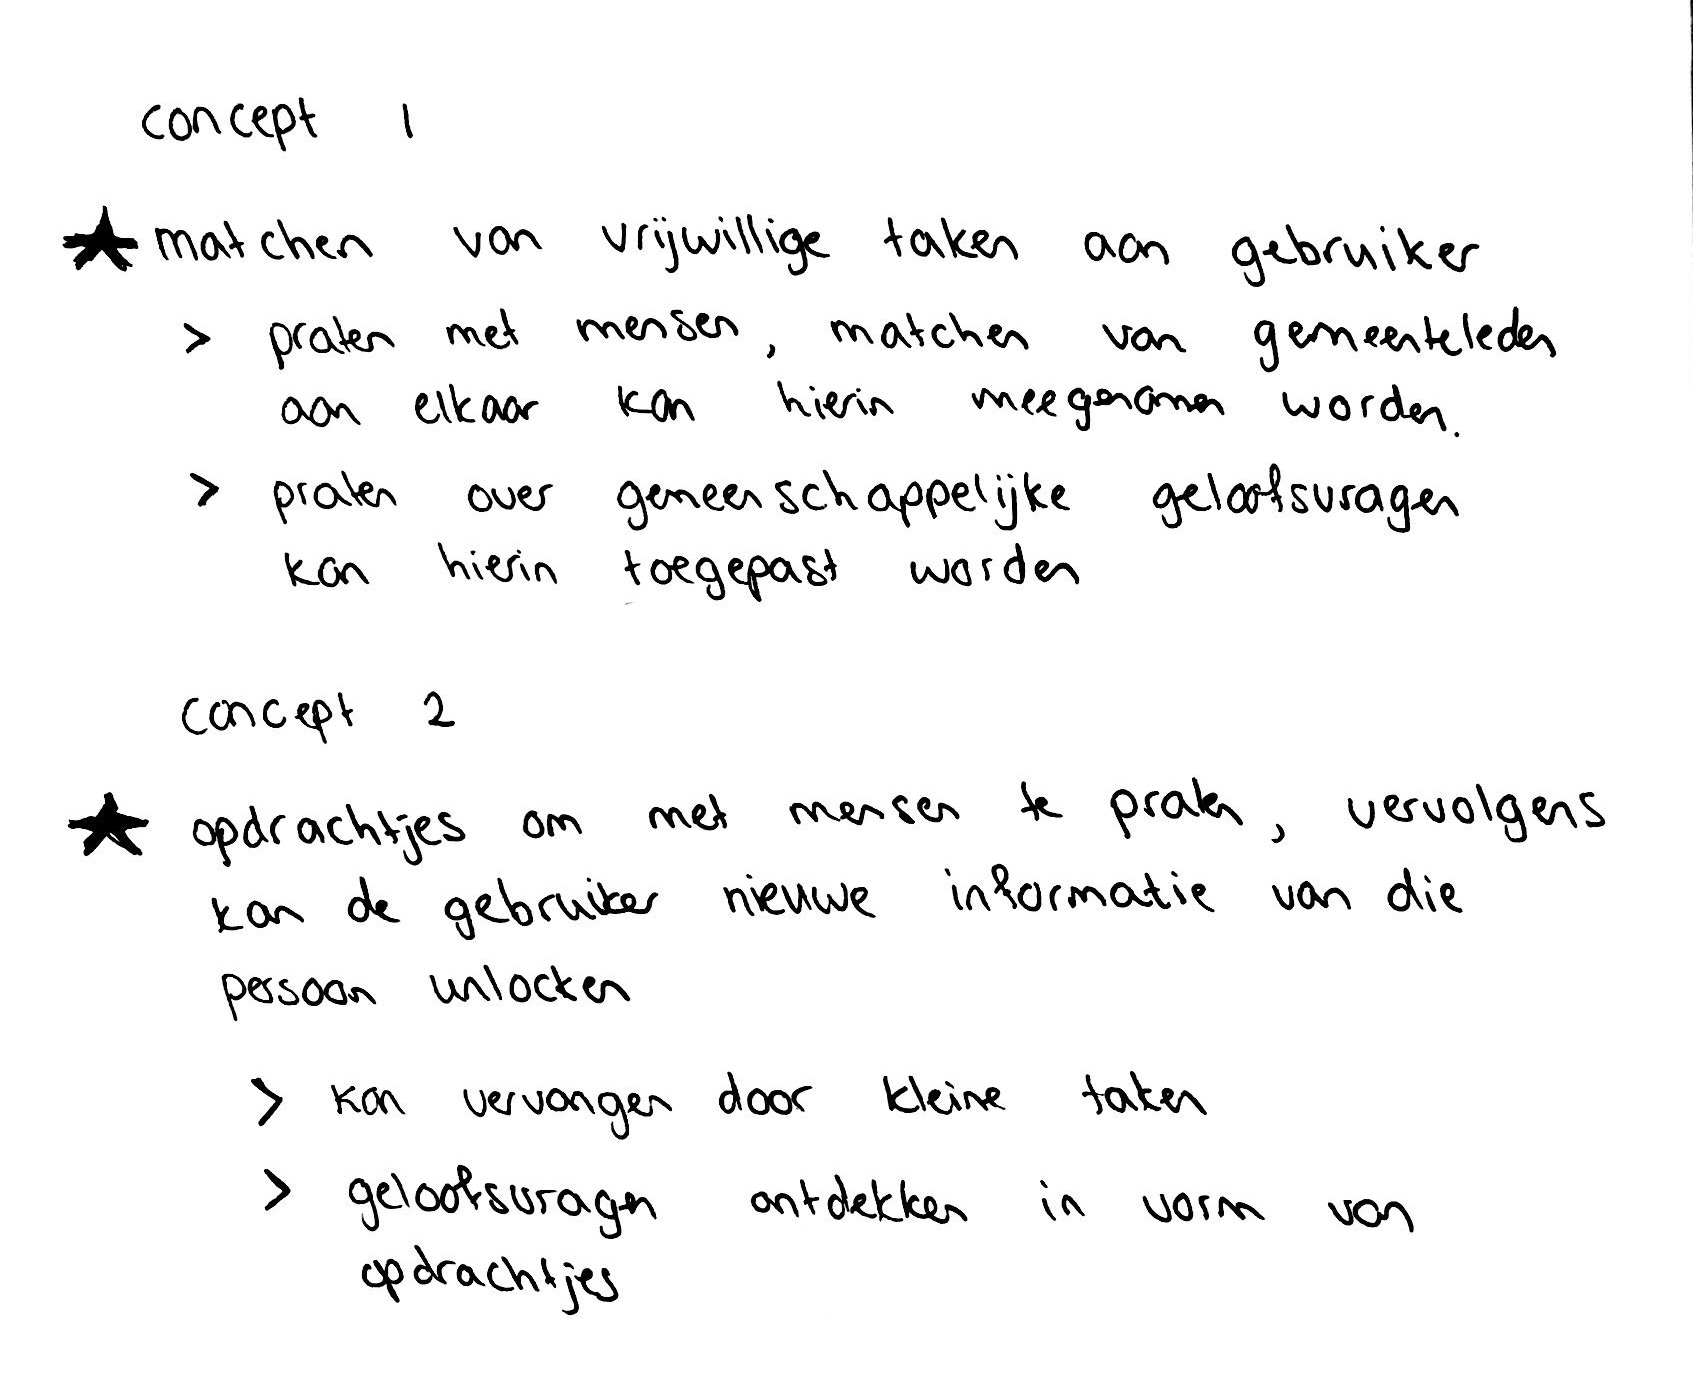 concept 1
★ matchen van vrijwillige taken aan gebruiker
> praten met mensen, matchen van gemeenteleden
aan elkaar kan hierin meegenomen worden.
> praten over gemeenschappelijke geloofsvragen
kan hierin toegepast worden
concept 2
★ opdrachtjes om met mensen te praten, vervolgens
kan de gebruiker nieuwe informatie van die
persoon unlocken
> kan vervangen door kleine taken
> geloofsvragen ontdekken in vorm van
opdrachtjes